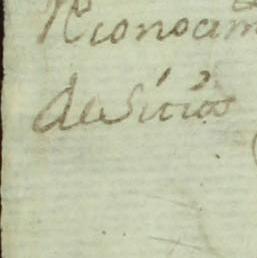 Rconocim
de Sicios